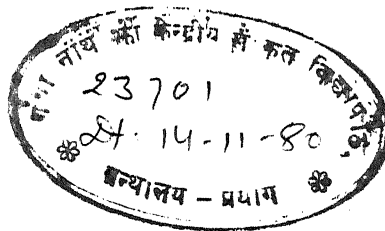 गंगा नाथ झा केन्द्रीय संस्कृत विद्यापीठ,
23701
Dt. 14-11-80
ग्रन्थालय – प्रयाग